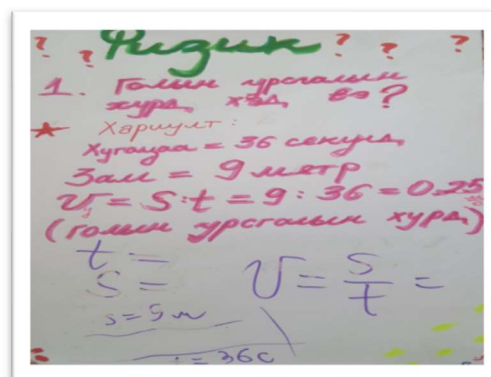 ? ? Физик ? ? ?
1. Голын урсгалын
хурд хэд вэ?
Хариулт:
Хугацаа = 36 секунд
Зам = 9 метр
V = S:t = 9 : 36 = 0.25
(голын урсгалын хурд)
t =
S =
V = S/t =
s = 9 м
= 36с